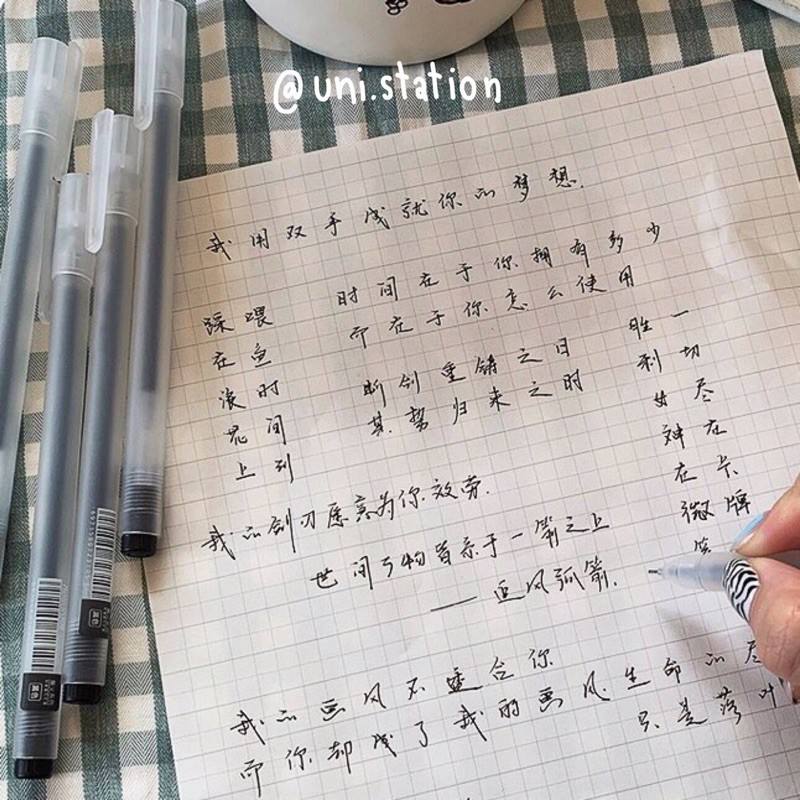 @uni.station
我用双手成就你的梦想.
时间在于你拥有多少
而在于你怎么使用
喂鱼时间到
踩在浪花上
断剑重铸之日
其势归来之时
一切尽在卡牌
胜利女神在微笑
我的剑刃愿意为你效劳.
世间万物皆系于一箭之上
——追风弧箭.
我的画风不适合你
而你却成了我的画风
生命的尽
只是落叶